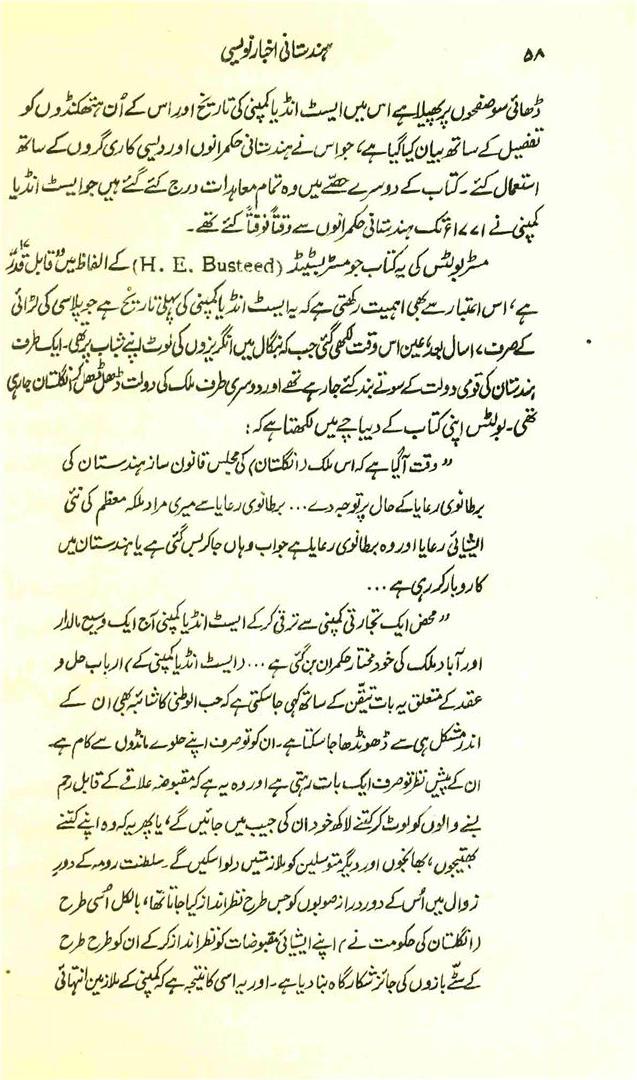 ۵۸ ہندستانی اخبار نویسی
ڈھائی سو صفحوں پر پھیلا ہے اس میں ایسٹ انڈیا کمپنی کی تاریخ اور اس کے اُن ہتھکنڈوں کو
تفصیل کے ساتھ بیان کیا گیا ہے، جو اس نے ہندستانی حکمرانوں اور دیسی کاری گروں کے ساتھ
استعمال کئے۔ کتاب کے دوسرے حصّے میں وہ تمام معاہدات درج کئے گئے ہیں جو ایسٹ انڈیا
کمپنی نے ۱۷۷۱ء تک ہندستانی حکمرانوں سے وقتاً فوقتاً کئے تھے۔
مسٹر بولٹس کی یہ کتاب جو مسٹر بسٹیڈ (H. E. Busteed) کے الفاظ میں "قابل قدر"
ہے، اس اعتبار سے بھی اہمیت رکھتی ہے کہ یہ ایسٹ انڈیا کمپنی کی پہلی تاریخ ہے جو پلاسی کی لڑائی
کے صرف ۱۷ سال بعد، عین اس وقت لکھی گئی جب کہ بنگال میں انگریزوں کی لوٹ اپنے شباب پر تھی۔ ایک طرف
ہندستان کی قومی دولت کے سوتے بند کئے جا رہے تھے اور دوسری طرف ملک کی دولت ڈھل ڈھل کر انگلستان جا رہی
تھی۔ بولٹس اپنی کتاب کے دیباچے میں لکھتا ہے کہ:
"وقت آگیا ہے کہ اس ملک (انگلستان) کی مجلس قانون ساز ہندستان کی
برطانوی رعایا کے حال پر توجہ دے... برطانوی رعایا سے میری مراد ملکہ معظم کی نئی
ایشیائی رعایا اور وہ برطانوی رعایا ہے جو اب وہاں جا کر بس گئی ہے یا ہندستان میں
کاروبار کر رہی ہے...
"محض ایک تجارتی کمپنی سے ترقی کر کے ایسٹ انڈیا کمپنی آج ایک وسیع مالدار
اور آباد ملک کی خود مختار حکمران بن گئی ہے... (ایسٹ انڈیا کمپنی کے) ارباب حل و
عقد کے متعلق یہ بات تیقّن کے ساتھ کہی جا سکتی ہے کہ حب الوطنی کا شائبہ بھی ان کے
اندر مشکل ہی سے ڈھونڈھا جا سکتا ہے۔ ان کو تو صرف اپنے حلوے مانڈوں سے کام ہے۔
ان کے پیش نظر تو صرف ایک بات رہتی ہے اور وہ یہ ہے کہ مقبوضہ علاقے کے قابل رحم
بسنے والوں کو لوٹ کر کتنے لاکھ خود ان کی جیب میں جائیں گے، یا پھر یہ کہ وہ اپنے کتنے
بھتیجوں، بھانجوں اور دیگر متوسلین کو ملازمتیں دلوا سکیں گے۔ سلطنت رومہ کے دورِ
زوال میں اُس کے دور دراز صوبوں کو جس طرح نظر انداز کیا جاتا تھا، بالکل اُسی طرح
(انگلستان کی حکومت نے) اپنے ایشیائی مقبوضات کو نظر انداز کر کے ان کو طرح طرح
کے سٹّے بازوں کی جائز شکار گاہ بنا دیا ہے۔ اور یہ اسی کا نتیجہ ہے کہ کمپنی کے ملازمین انتہائی